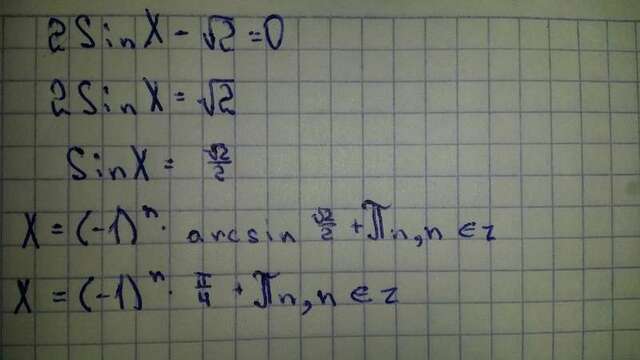 2SinX - √2 = 0
2SinX = √2
SinX = √2/2
X = (-1)^n · arcsin √2/2 + πn, n ∈ z
X = (-1)^n · π/4 + πn, n ∈ z